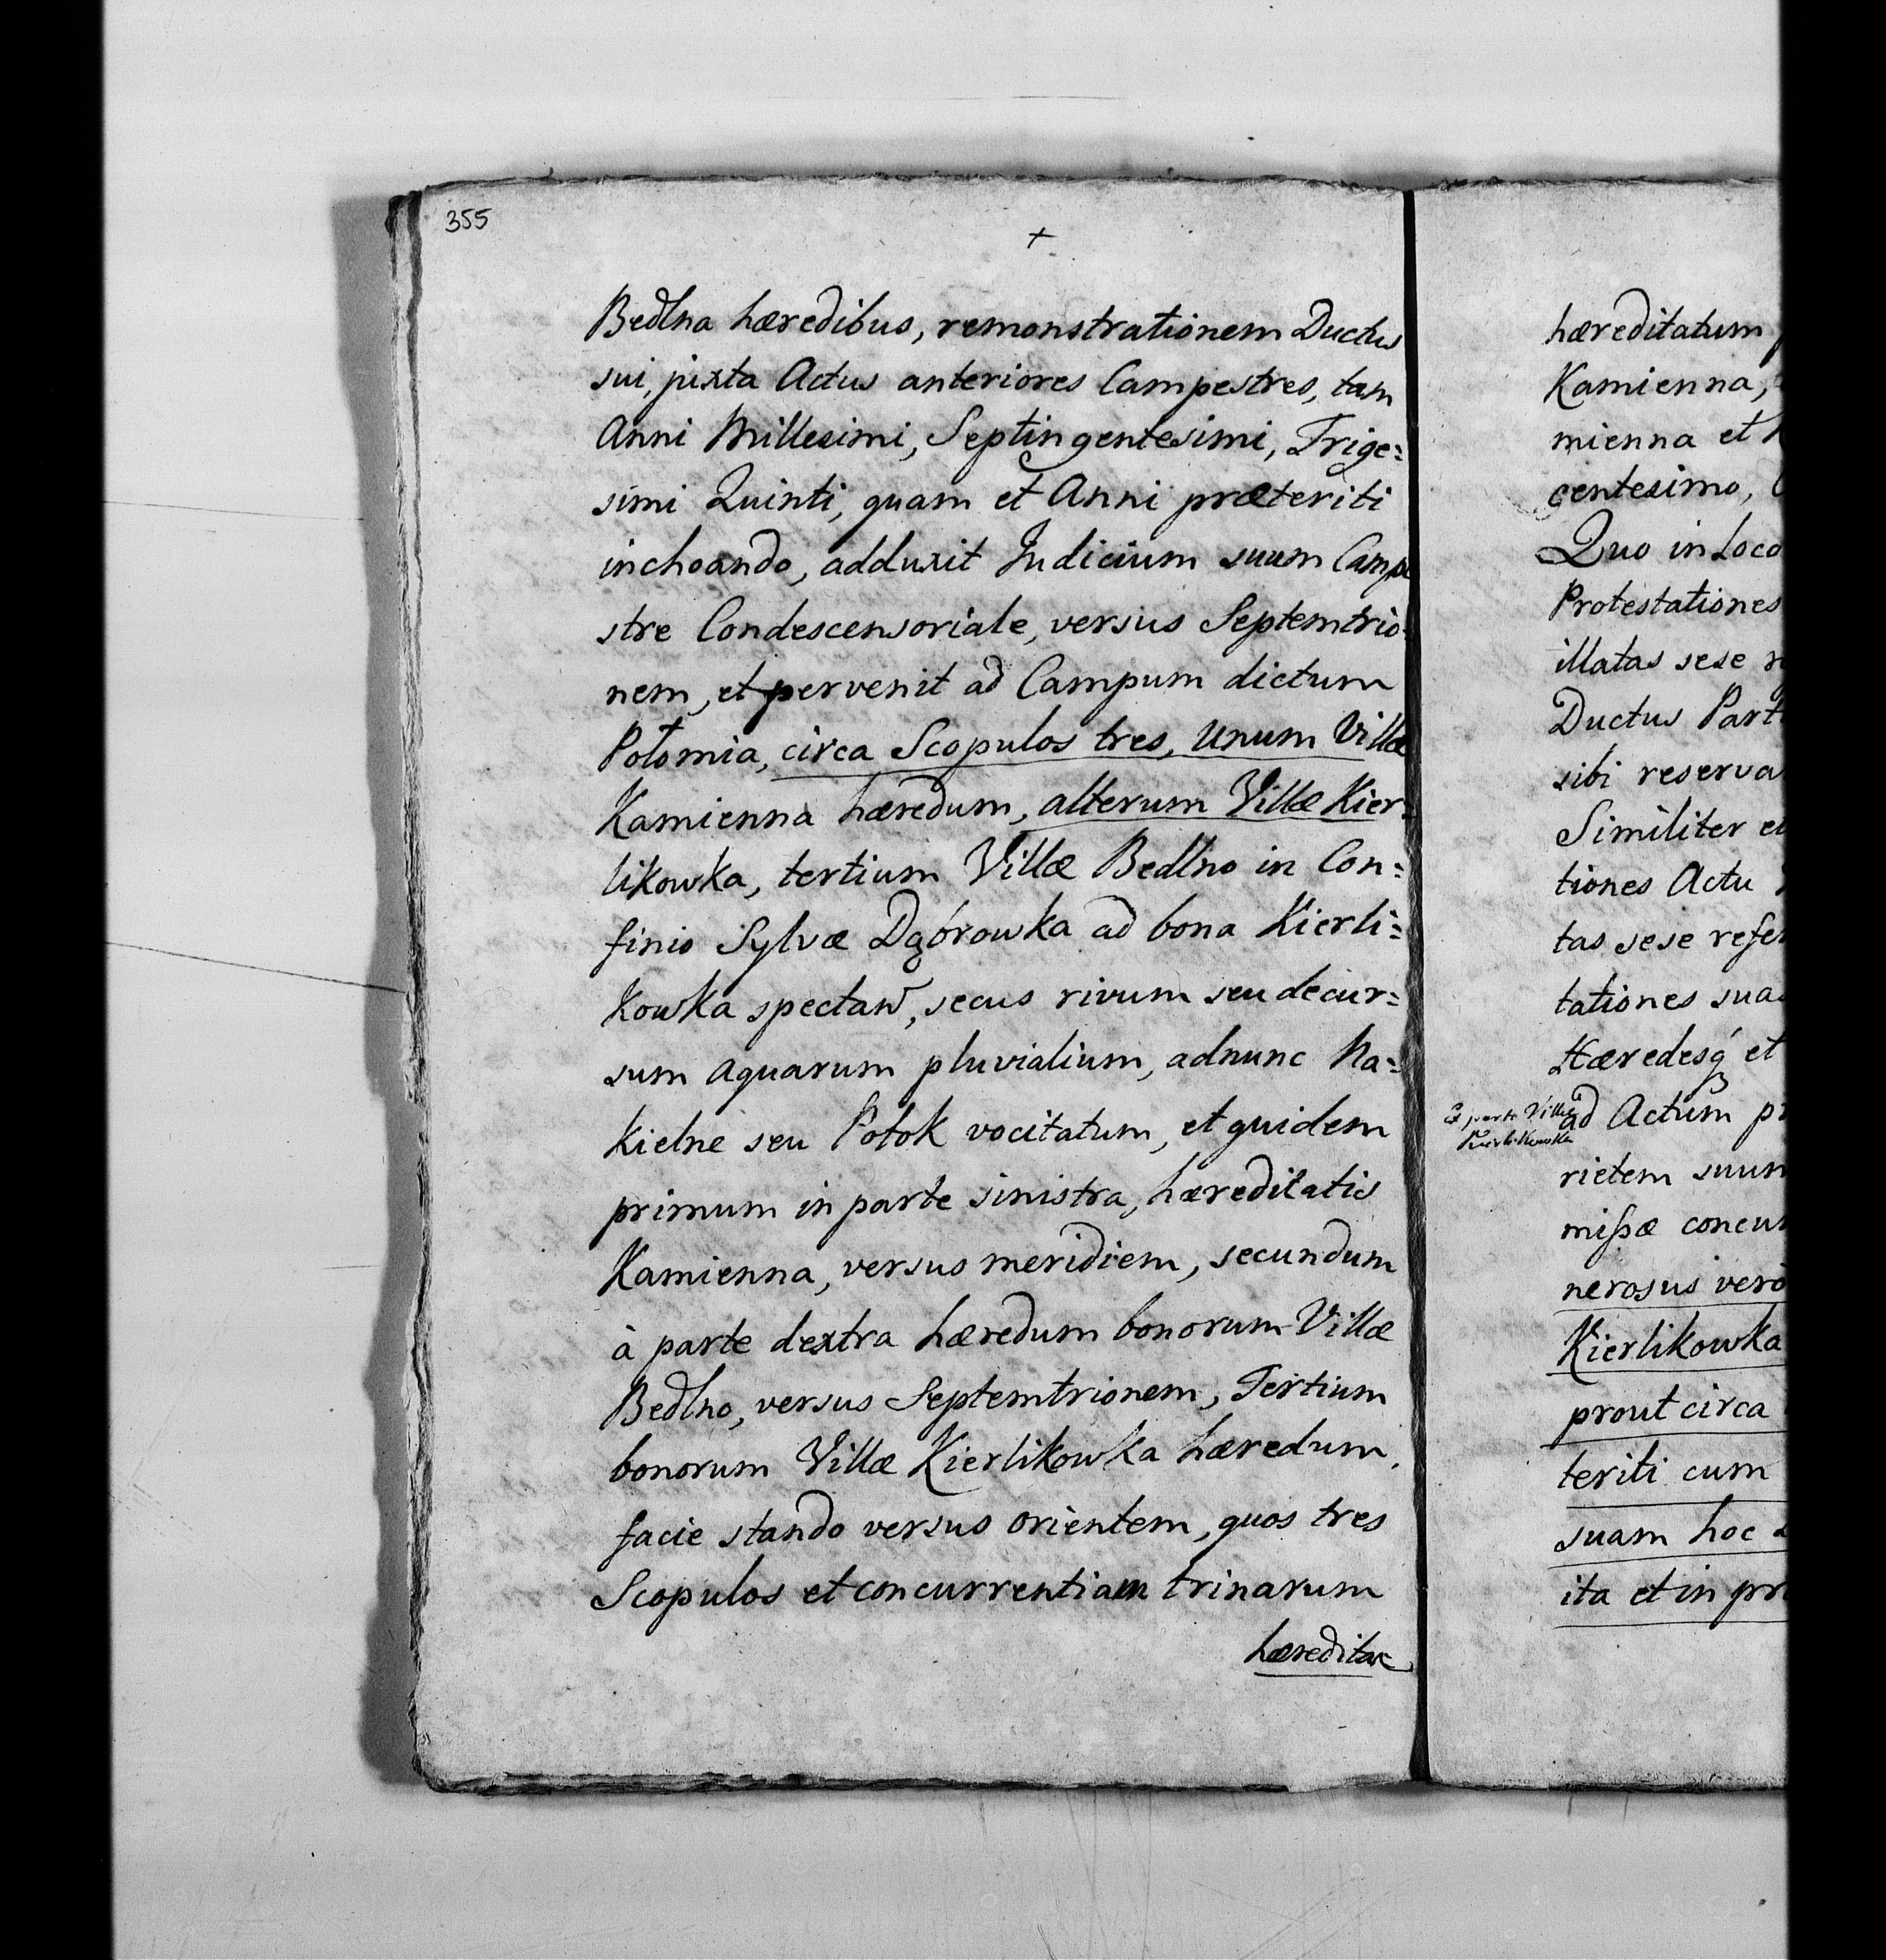 355
+
Bedlna hæredibus, remonstrationem Ductus
sui, juxta Actus anteriores Campestres, tam
Anni Millesimi, Septingentesimi, Trige=
simi Quinti, quam et Anni præteriti
inchoando, adduxit Judicium suum Campe
stre Condescensoriale, versus Septemtrio=
nem, et pervenit ad Campum dictum
Potomia, circa Scopulos tres, Unum Villæ
Kamienna hæredum, alterum Villæ Kier=
likowka, tertium Villæ Bedlno in Con=
finio Sylvæ Dąbrowka ad bona Kierli=
kowka spectan, secus rivum seu decur=
sum aquarum pluvialium, adnunc Na=
kielne seu Potok vocitatum, et quidem
primum in parte sinistra, hæreditatis
Kamienna, versus meridiem, secundum
à parte dextra hæredum bonorum Villæ
Bedlno, versus Septemtrionem, Tertium
bonorum Villæ Kierlikowka hæredum,
facie stando versus orientem, quos tres
Scopulos et concurrentiam trinarum
hæreditat
hæreditatum
Kamienna,
mienna et
centesimo,
Quo in Loco
Protestationes
illatas sese
Ductus Part
sibi reserva
Similiter et
tiones Actu
tas sese refer
tationes suas
Hæredesq et
Ex parte Villæ
Kierlikowka
ad Actum pr
rietem suum
missæ concur
nerosus verò
Kierlikowka
prout circa
teriti cum
suam hoc
ita et in pr